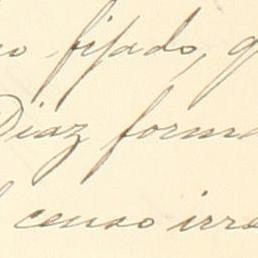 fijado, q
Diaz forma
censo irre